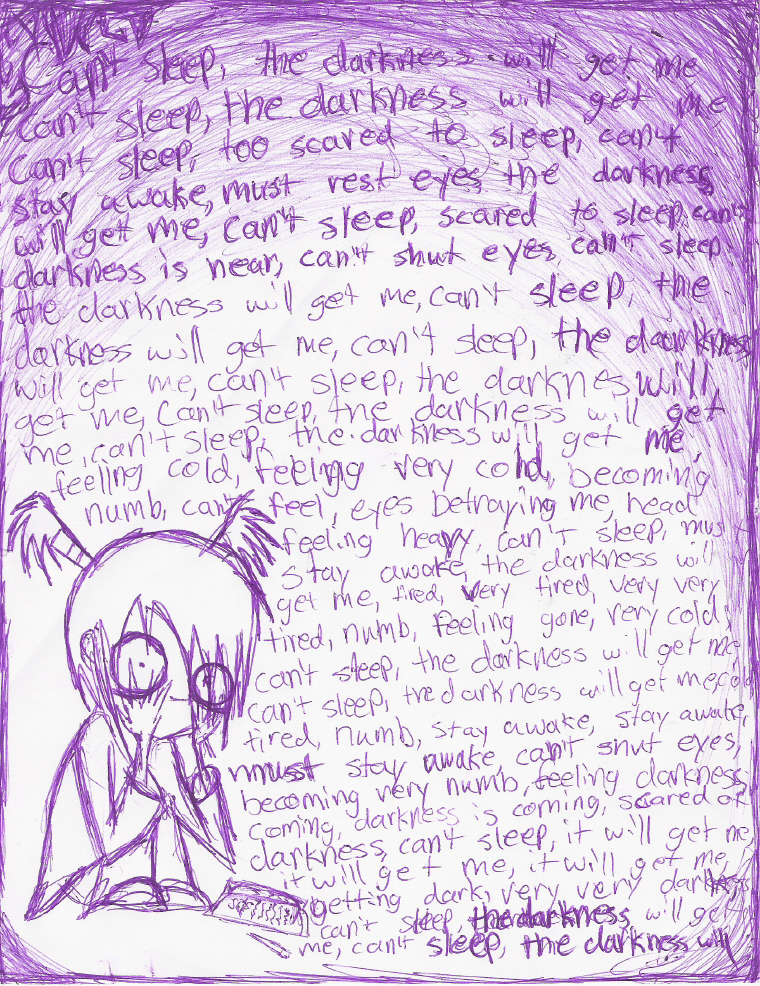 Can't sleep, the darkness will get me
Can't sleep, the darkness will get me
Can't sleep, too scared to sleep, can't
stay awake, must rest eyes, the darkness
will get me, Can't sleep, scared to sleep, can't
darkness is near, can't shut eyes, can't sleep.
the darkness will get me, can't sleep, the
darkness will get me, can't sleep, the darkness
will get me, can't sleep, the darknes will
get me, Can't sleep, the darkness will get
me, can't sleep, the darkness will get me,
feeling cold, feeling very cold, becoming
numb, can't feel, eyes betraying me, head
feeling heavy, can't sleep, must
stay awake, the darkness will
get me, tired, very tired, very very
tired, numb, feeling gone, very cold,
can't sleep, the darkness will get me
can't sleep, the darkness will get me, cold
tired, numb, stay awake, stay awake,
must stay awake, can't shut eyes,
becoming very numb, feeling darkness
coming, darkness is coming, scared of
darkness, can't sleep, it will get me,
it will get me, it will get me,
getting dark, very very darkness
can't sleep, the darkness will get
me, can't sleep, the darkness will